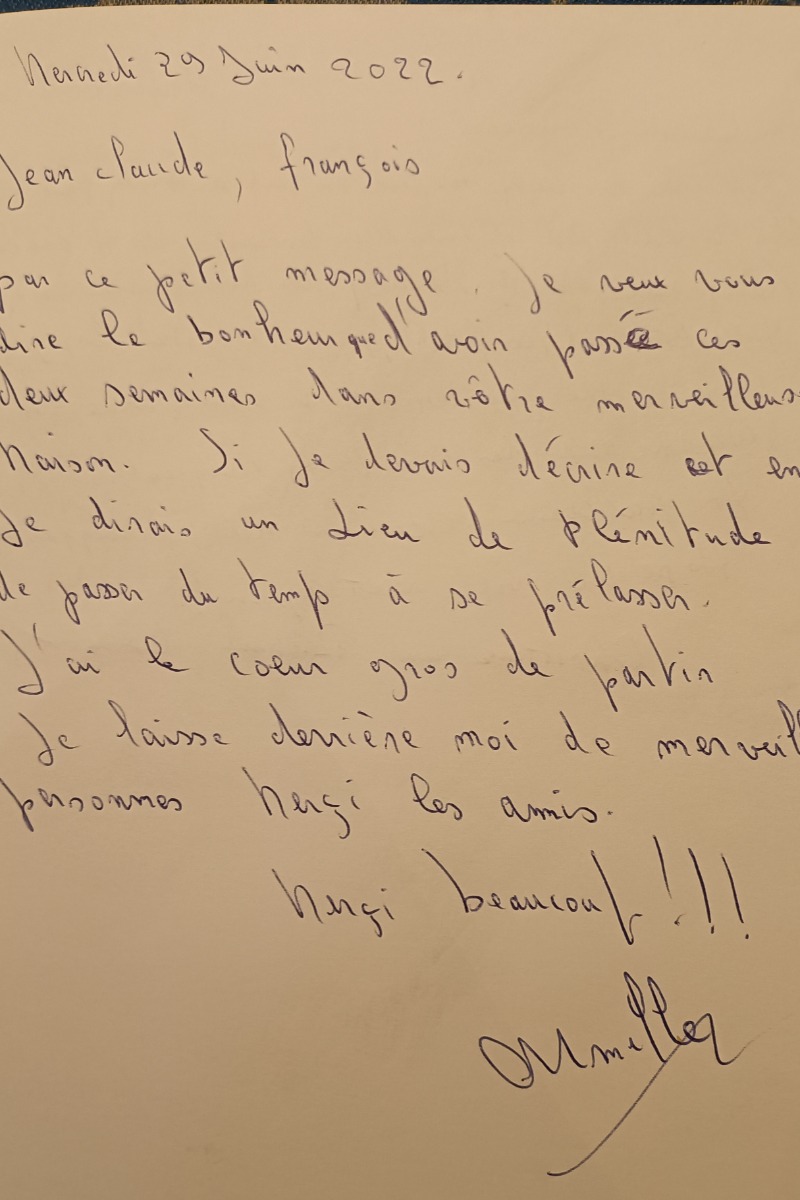 Mercredi 29 Juin 2022.
Jean claude, françois
par ce petit message. Je veux vous
dire le bonheur que d'avoir passé ces
deux semaines dans vôtre merveilleus
Maison. Si Je devais décrire cet en
Je dirais un Lieu de Plénitude
de passer du temp à se prélasser.
J'ai le coeur gros de partir
Je laisse derrière moi de merveill
personnes Merçi les amis.
Merçi beaucoup!!!